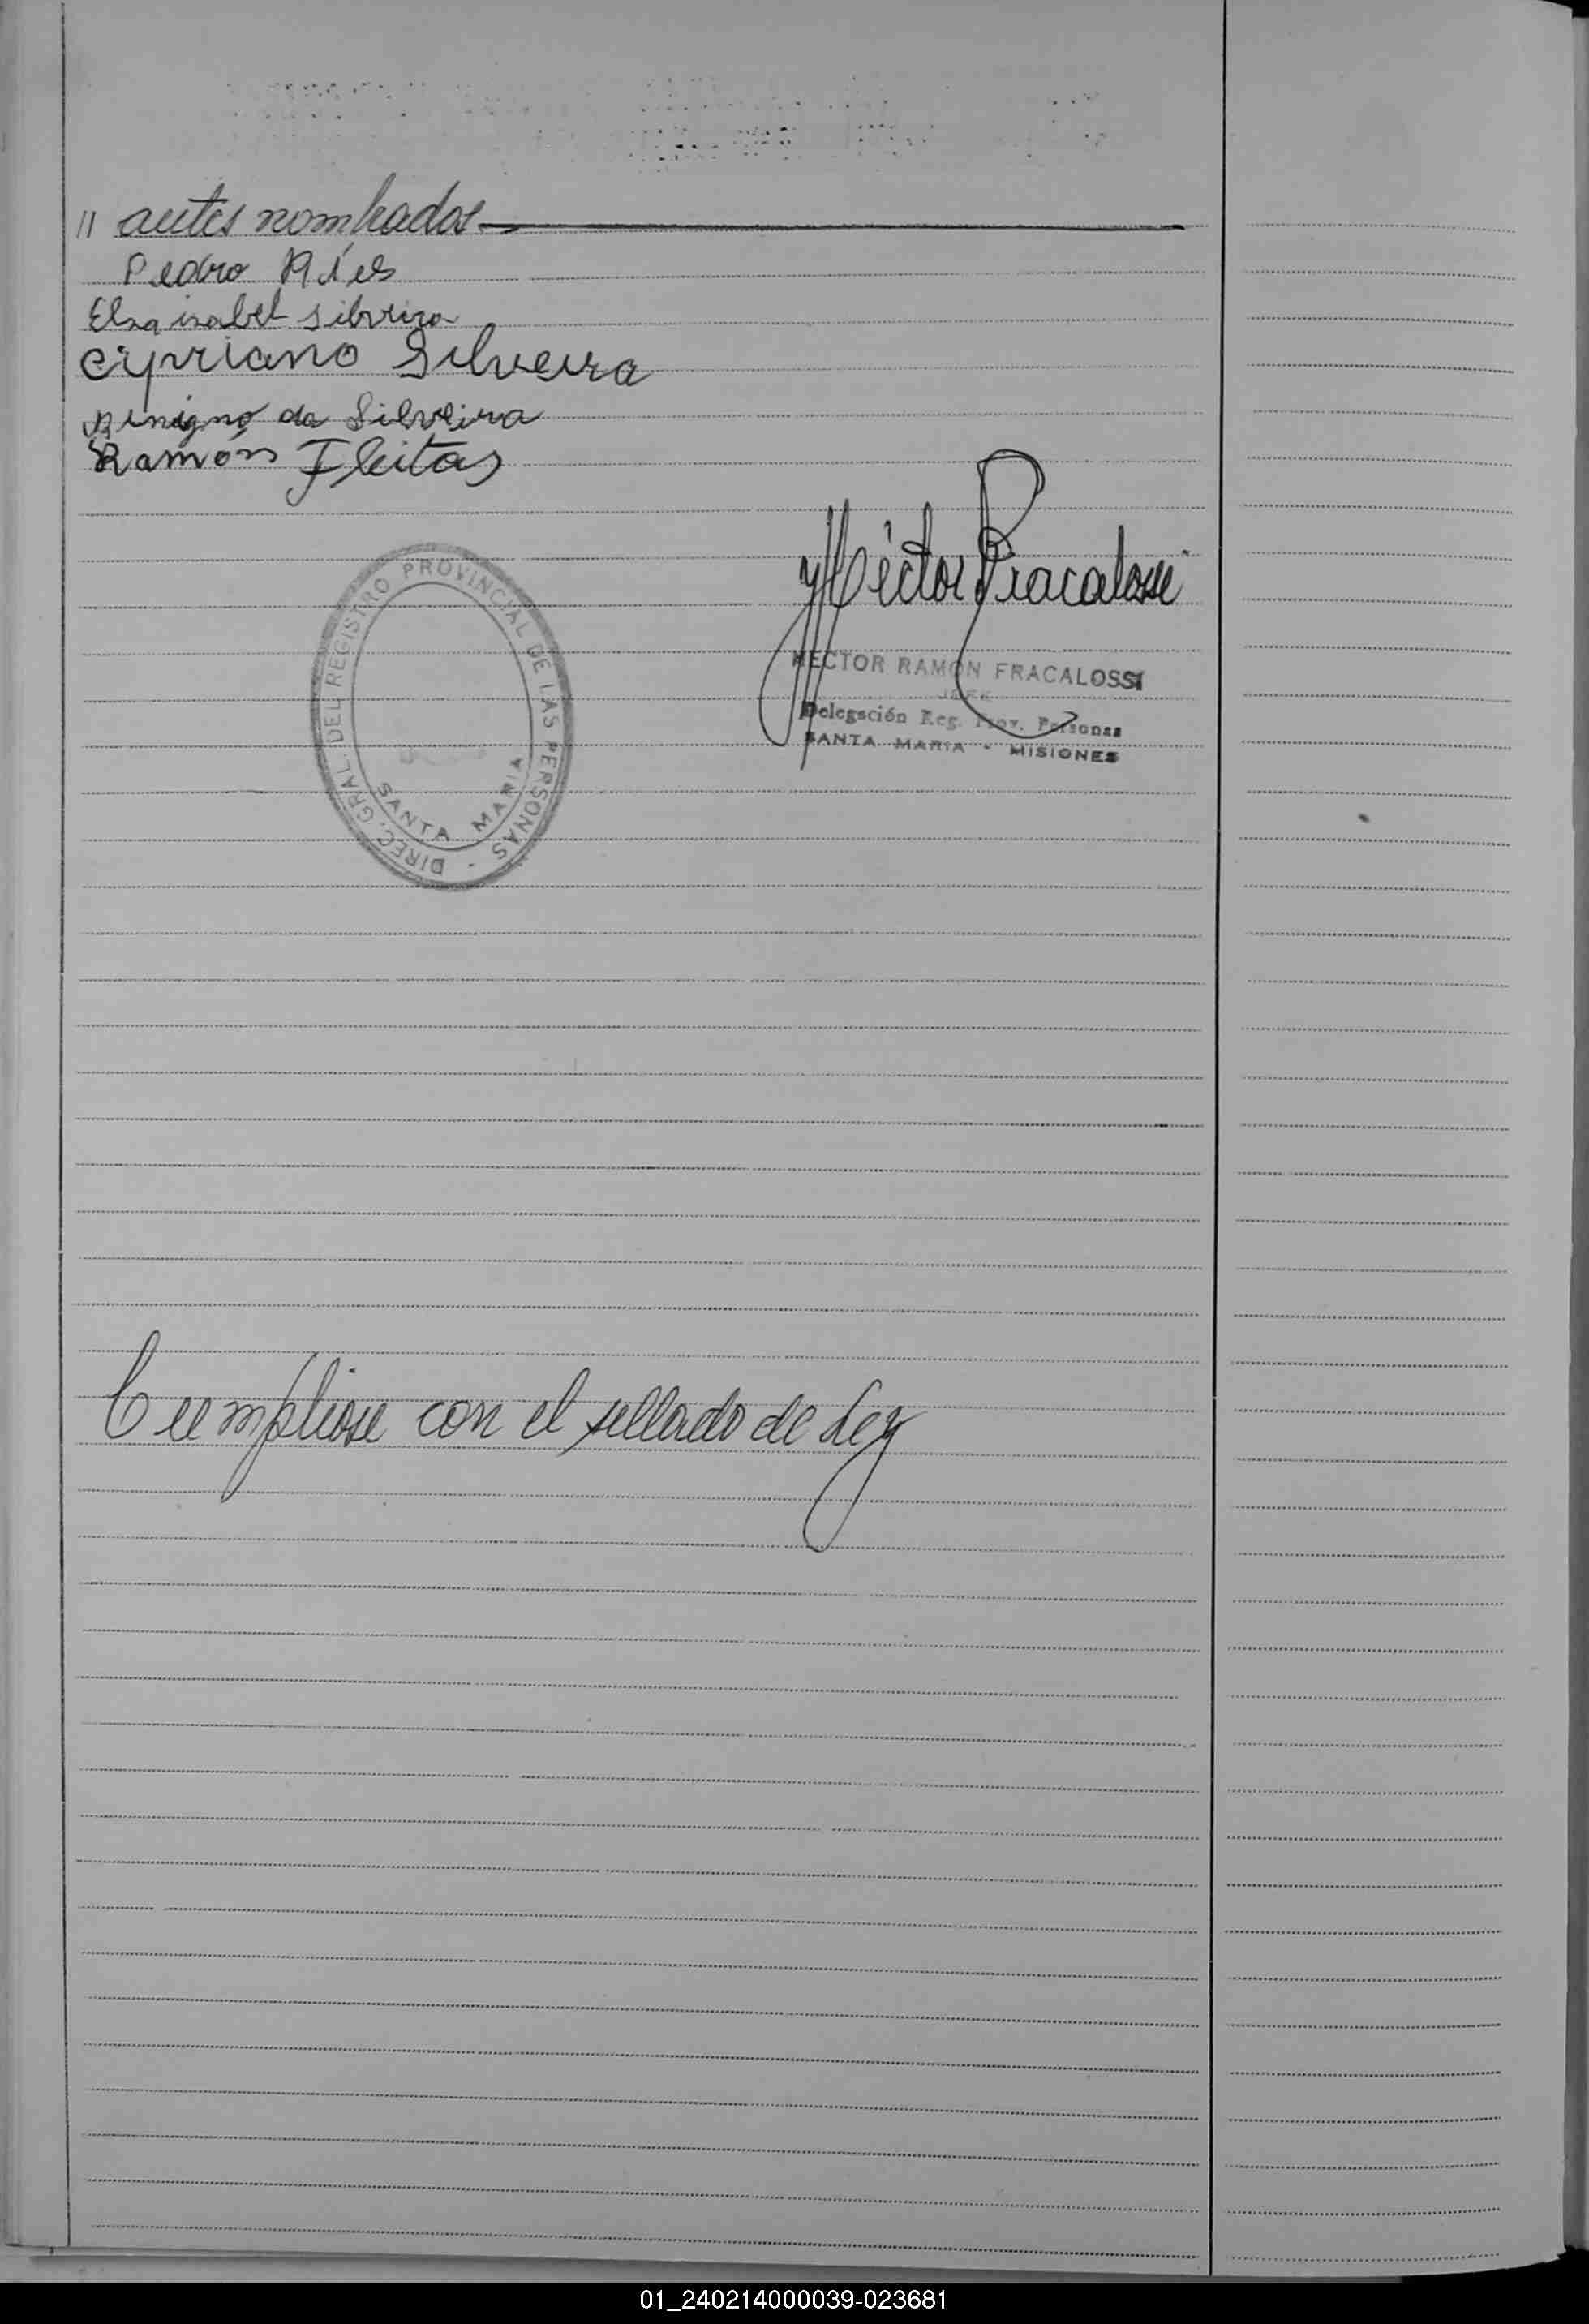 // antes nombrados
Pedro Ríes
Elsa isabel silveira
Cipriano Silveira
Benigno da Silveira
Ramón Fleitas
Héctor Fracalossi
HECTOR RAMON FRACALOSSI
JEFE
Delegación Reg. Prov. Personas
SANTA MARIA - MISIONES
DIREC. GRAL. DEL REGISTRO PROVINCIAL DE LAS PERSONAS -
SANTA MARIA
Cumpliose con el sellado de Ley
01_240214000039-023681